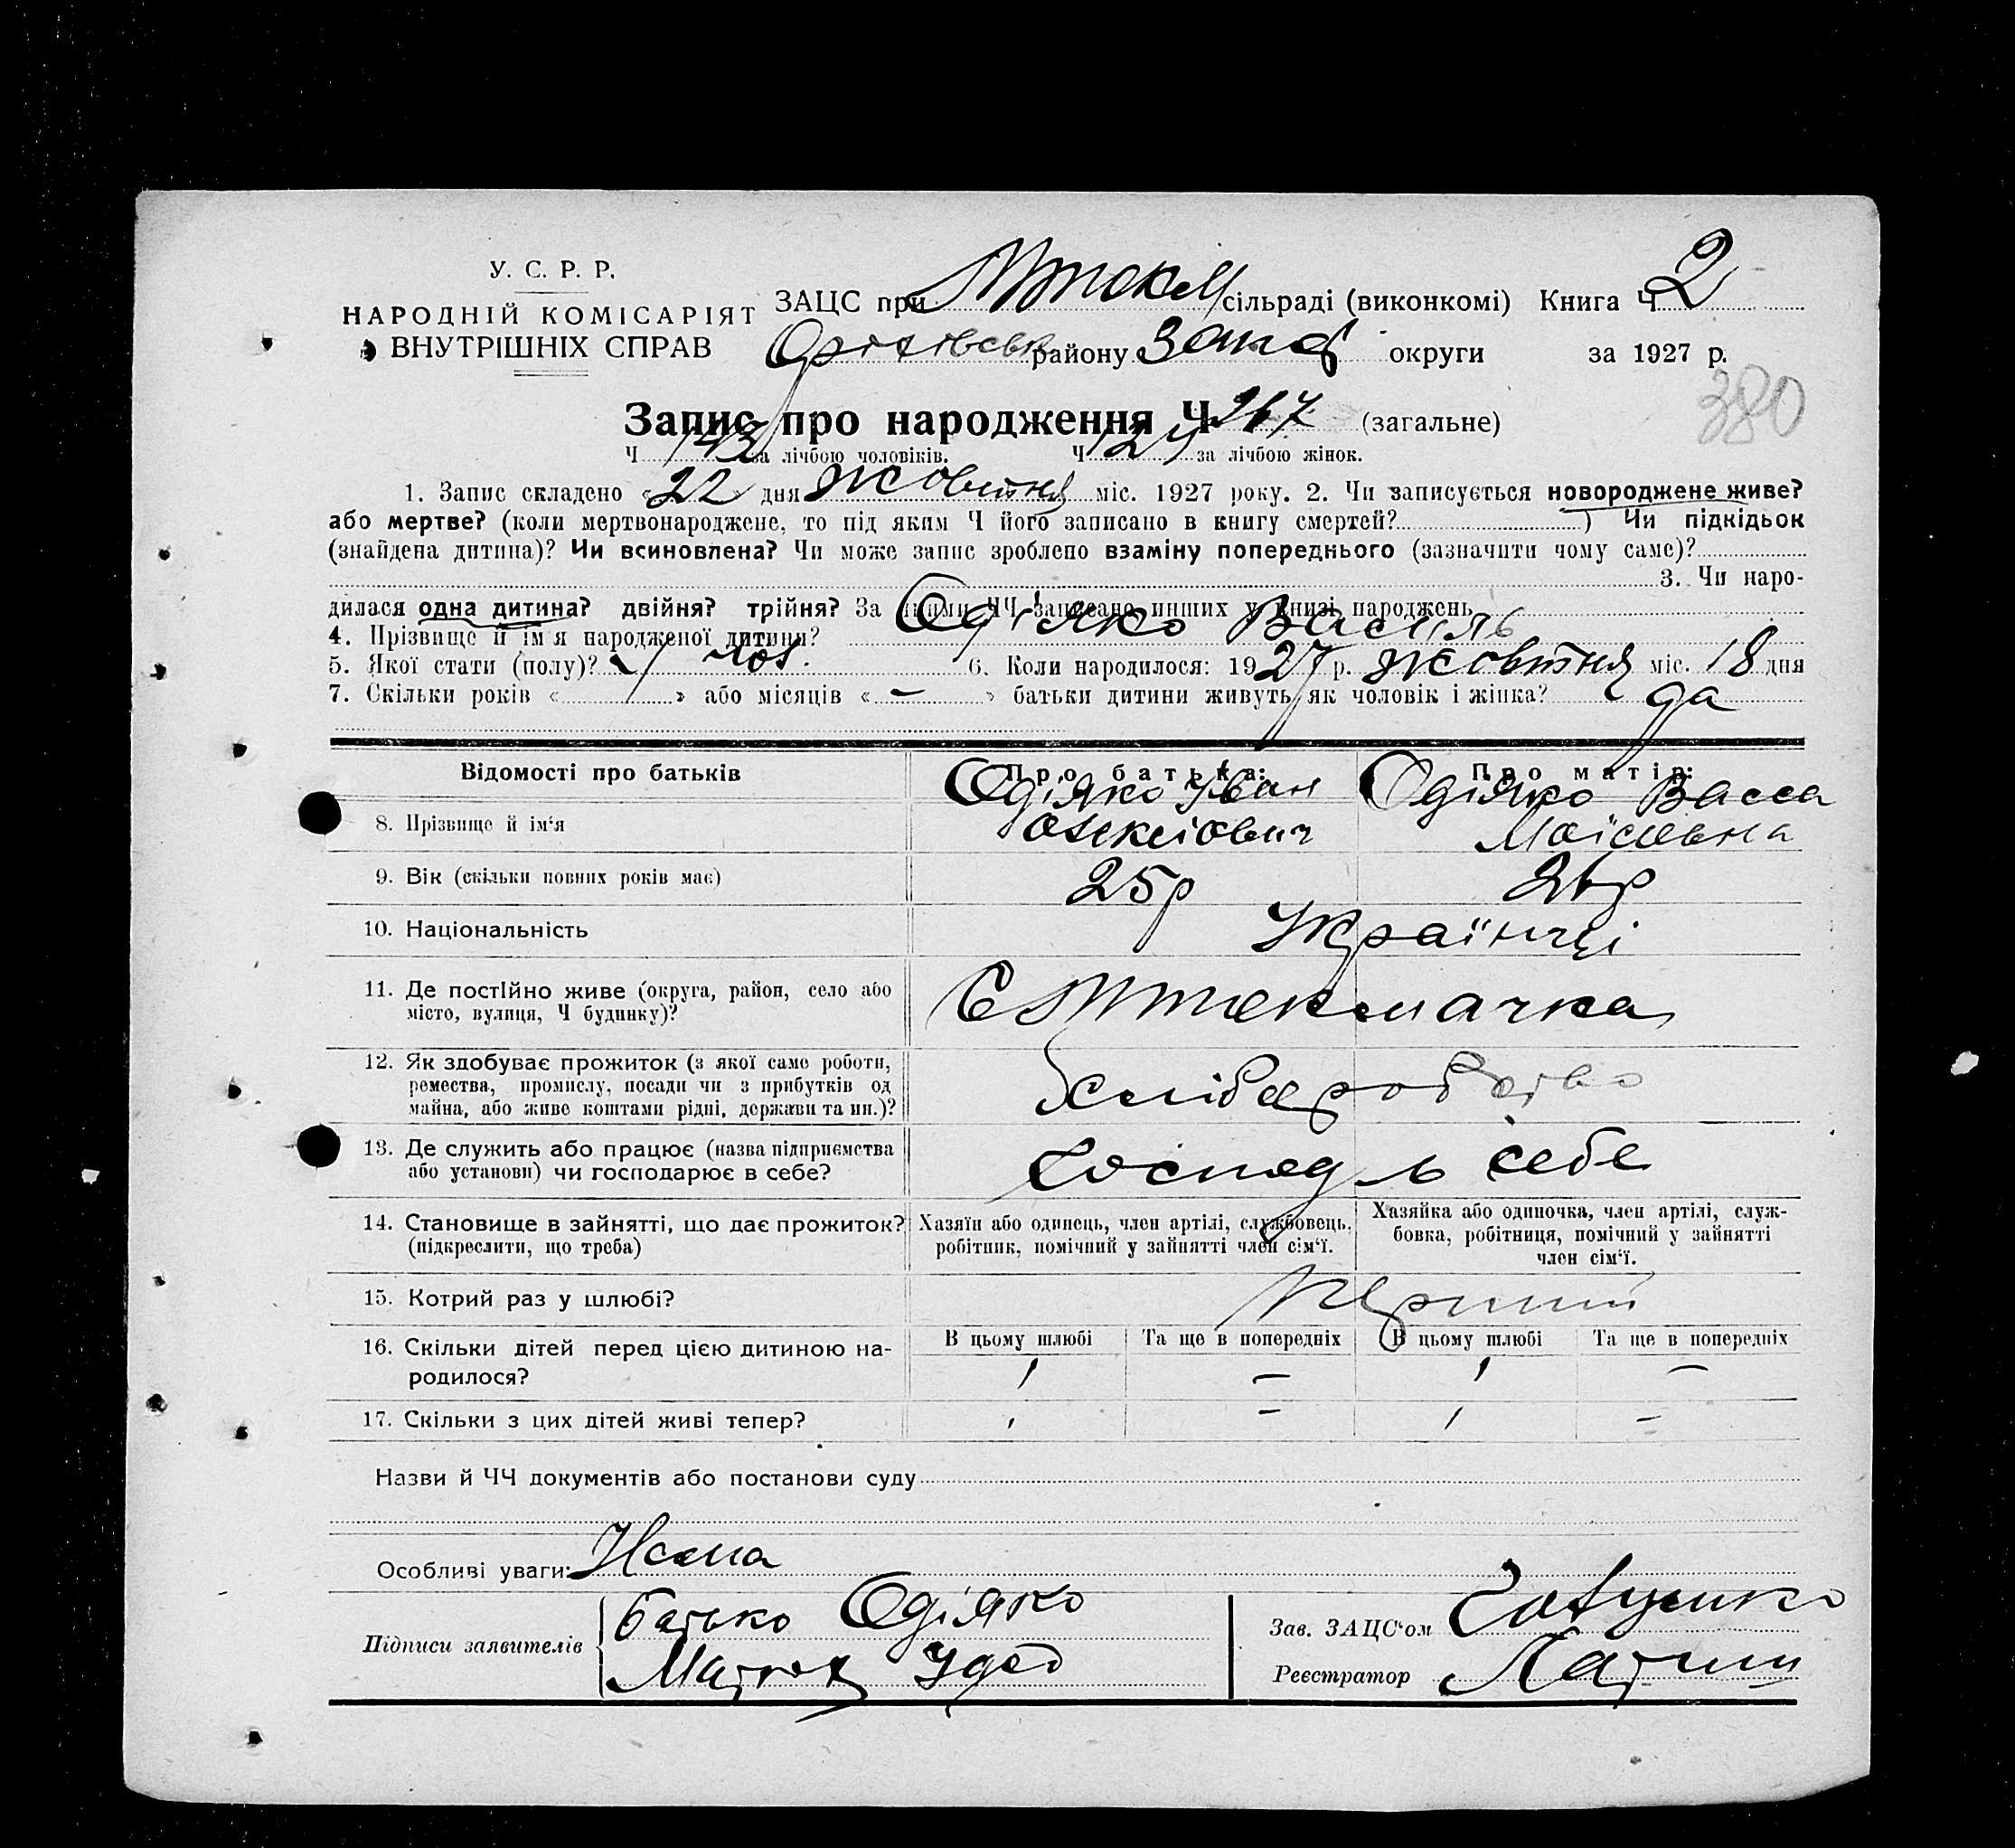 У. С. Р. Р.
НАРОДНІЙ КОМІСАРІЯТ
ВНУТРІШНІХ СПРАВ
ЗАЦС при М Токм сільраді (виконкомі) Книга Ч 2
Оріхівськ району Запоріз округи за 1927 р.
380
Запис про народження Ч 267 (загальне)
Ч 143 за лічбою чоловіків. Ч 124 за лічбою жінок.
1. Запис складено «22» дня жовтня міс. 1927 року. 2. Чи записується новороджене живе?
або мертве? (коли мертвонароджене, то під яким Ч його записано в книгу смертей? ) Чи підкідьок
(знайдена дитина)? Чи всиновлена? Чи може запис зроблено взаміну попереднього (зазначити чому саме)?
3. Чи наро-
дилася одна дитина? двійня? трійня? За якими ЧЧ записано инших у книзі народжень
4. Прізвище й ім'я народженої дитини? Одіяко Василь
5. Якої стати (полу)? чол. 6. Коли народилося: 1927 р. жовтня міс. 18 дня
7. Скільки років « » або місяців « – » батьки дитини живуть як чоловік і жінка? да
Відомості про батьків Про батька: Про матір:
8. Прізвище й ім'я Одіяко Іван Олексіович Одіяко Васса Моісеївна
9. Вік (скільки повних років має) 25р 26р
10. Національність Українці
11. Де постійно живе (округа, район, село або
місто, вулиця, Ч будинку)? С М Токмачка
12. Як здобуває прожиток (з якої саме роботи,
ремества, промислу, посади чи з прибутків од
майна, або живе коштами рідні, держави та ин.)? Хліборобство
13. Де служить або працює (назва підприємства
або установи) чи господарює в себе? Господ в себе
14. Становище в зайнятті, що дає прожиток?
(підкреслити, що треба)
Хазяїн або одинець, член артілі, службовець,
робітник, помічний у зайнятті член сім'ї.
Хазяйка або одиночка, член артілі, служ-
бовка, робітниця, помічний у зайнятті
член сім'ї.
15. Котрий раз у шлюбі? Перший
16. Скільки дітей перед цією дитиною на-
родилося?
В цьому шлюбі Та ще в попередніх В цьому шлюбі Та ще в попередніх
1 – 1 –
17. Скільки з цих дітей живі тепер? 1 – 1 –
Назви й ЧЧ документів або постанови суду
Особливі уваги: Нема
Підписи заявителів Батько Одіяко
Зав. ЗАЦС'ом
Реєстратор